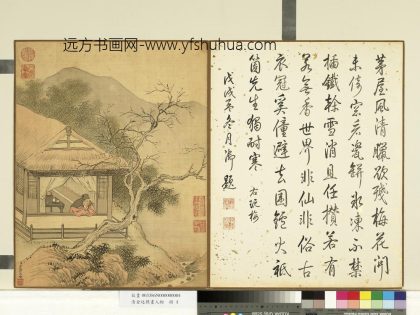 远方书画网-www.yfshuhua.com
茅屋風清臘欲殘梅花開
未倚窗看瓷缾氷凍不禁
插鐵榦雪消且任攢若有
若無香世界非仙非俗古
衣冠奚僮避去圍鑪火祗
箇先生獨耐寒
右玩梅
戊戌季冬月御題